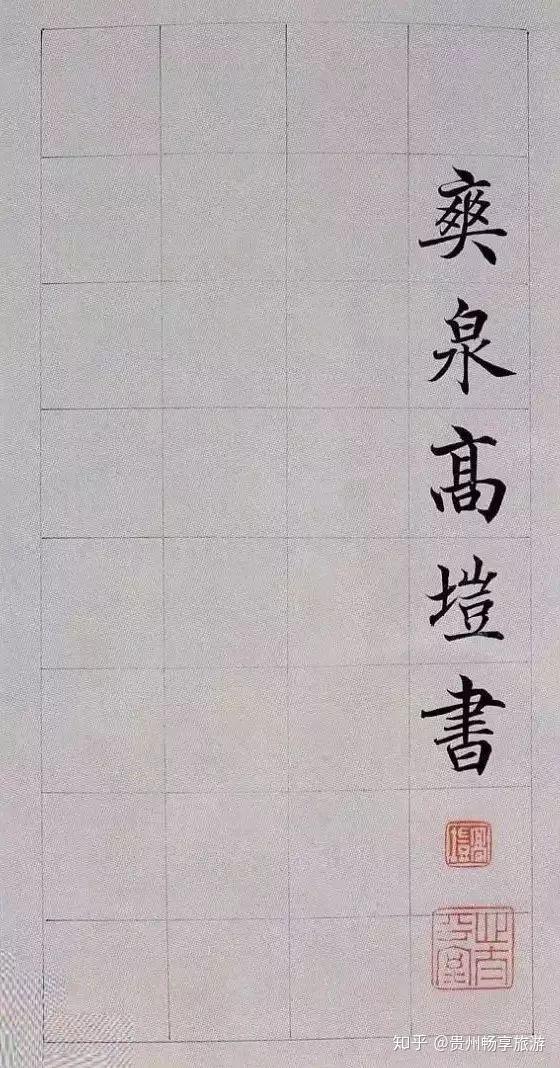 爽泉髙塏書
高塏
知乎 @贵州畅享旅游